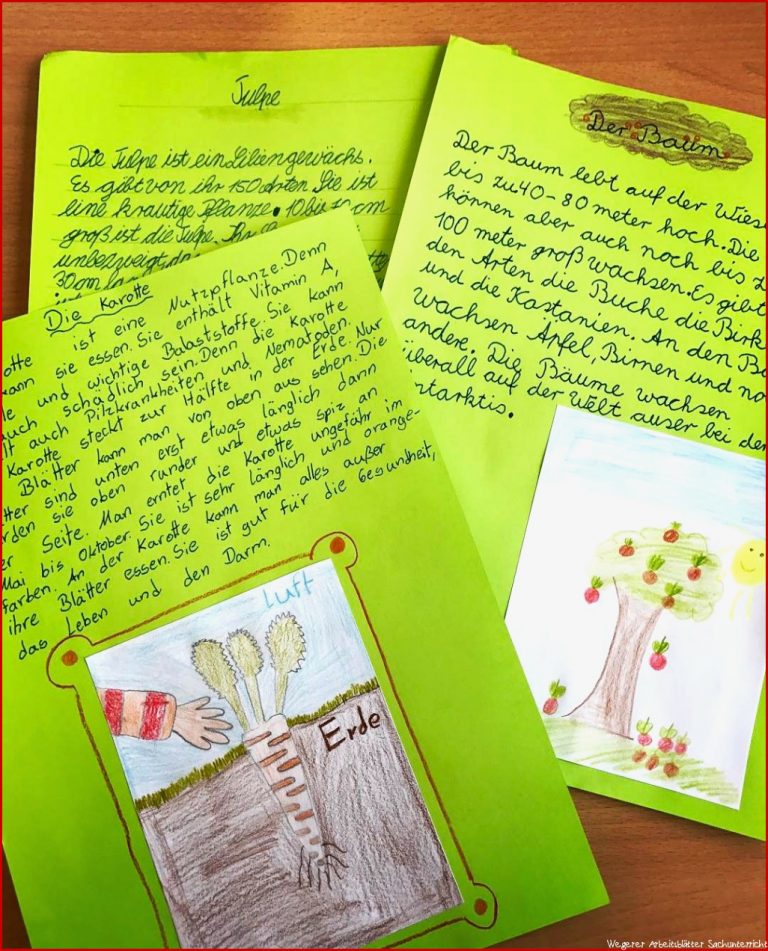 Tulpe
Die Tulpe ist ein Liliengewächs.
Es gibt von ihr 150 Arten. Sie ist
eine krautige Pflanze. 10 bis
groß ist die Tulpe.
unbezweigt
30 cm
Der Baum
Der Baum lebt auf der Wies
bis zu 40-80 meter hoch. Die
können aber auch noch bis z
100 meter groß wachsen. Es gibt
den Arten die Buche die Birk
und die Kastanien. An den B
wachsen Äpfel, Birnen und no
andere. Die Bäume wachsen
überall auf der Welt auser bei der
ntarktis.
Die Karotte
otte ist eine Nutzpflanze. Denn
kann sie essen. Sie enthält Vitamin A,
le und wichtige Balaststoffe. Sie kann
auch schädlich sein. Denn die Karotte
lt auch Pilzkrankheiten und Nematoden.
Karotte steckt zur Hälfte in der Erde. Nur
Blätter kann man von oben aus sehen. Die
tter sind unten erst etwas länglich dann
rden sie oben runder und etwas spiz an
er Seite. Man erntet die Karotte ungefähr im
Mai bis Oktober. Sie ist sehr länglich und orange-
farben. An der Karotte kann man alles außer
ihre Blätter essen. Sie ist gut für die Gesundheit,
das Leben und den Darm.
Luft
Erde
Wegerer Arbeitsblätter Sachunterricht